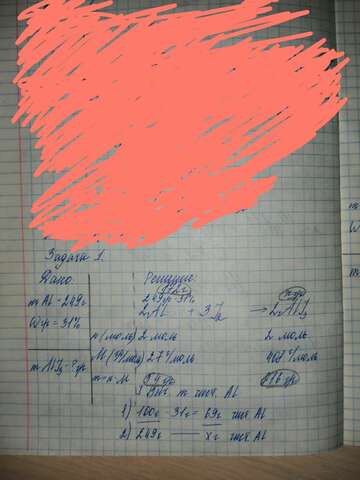 Задача 1.
Дано: Решение:
m Al = 249г 249гр 31%
Wпр = 31% 2Al + 3J₂ → 2AlJ₃
n (моль) 2 моль 2 моль
m AlJ₃ - ? гр M (г/моль) 27 г/моль 408 г/моль
m = n · M 54 гр 816 гр
m чист. Al
1) 100г - 31г = 69г чист. Al
2) 249г — xг чист. Al